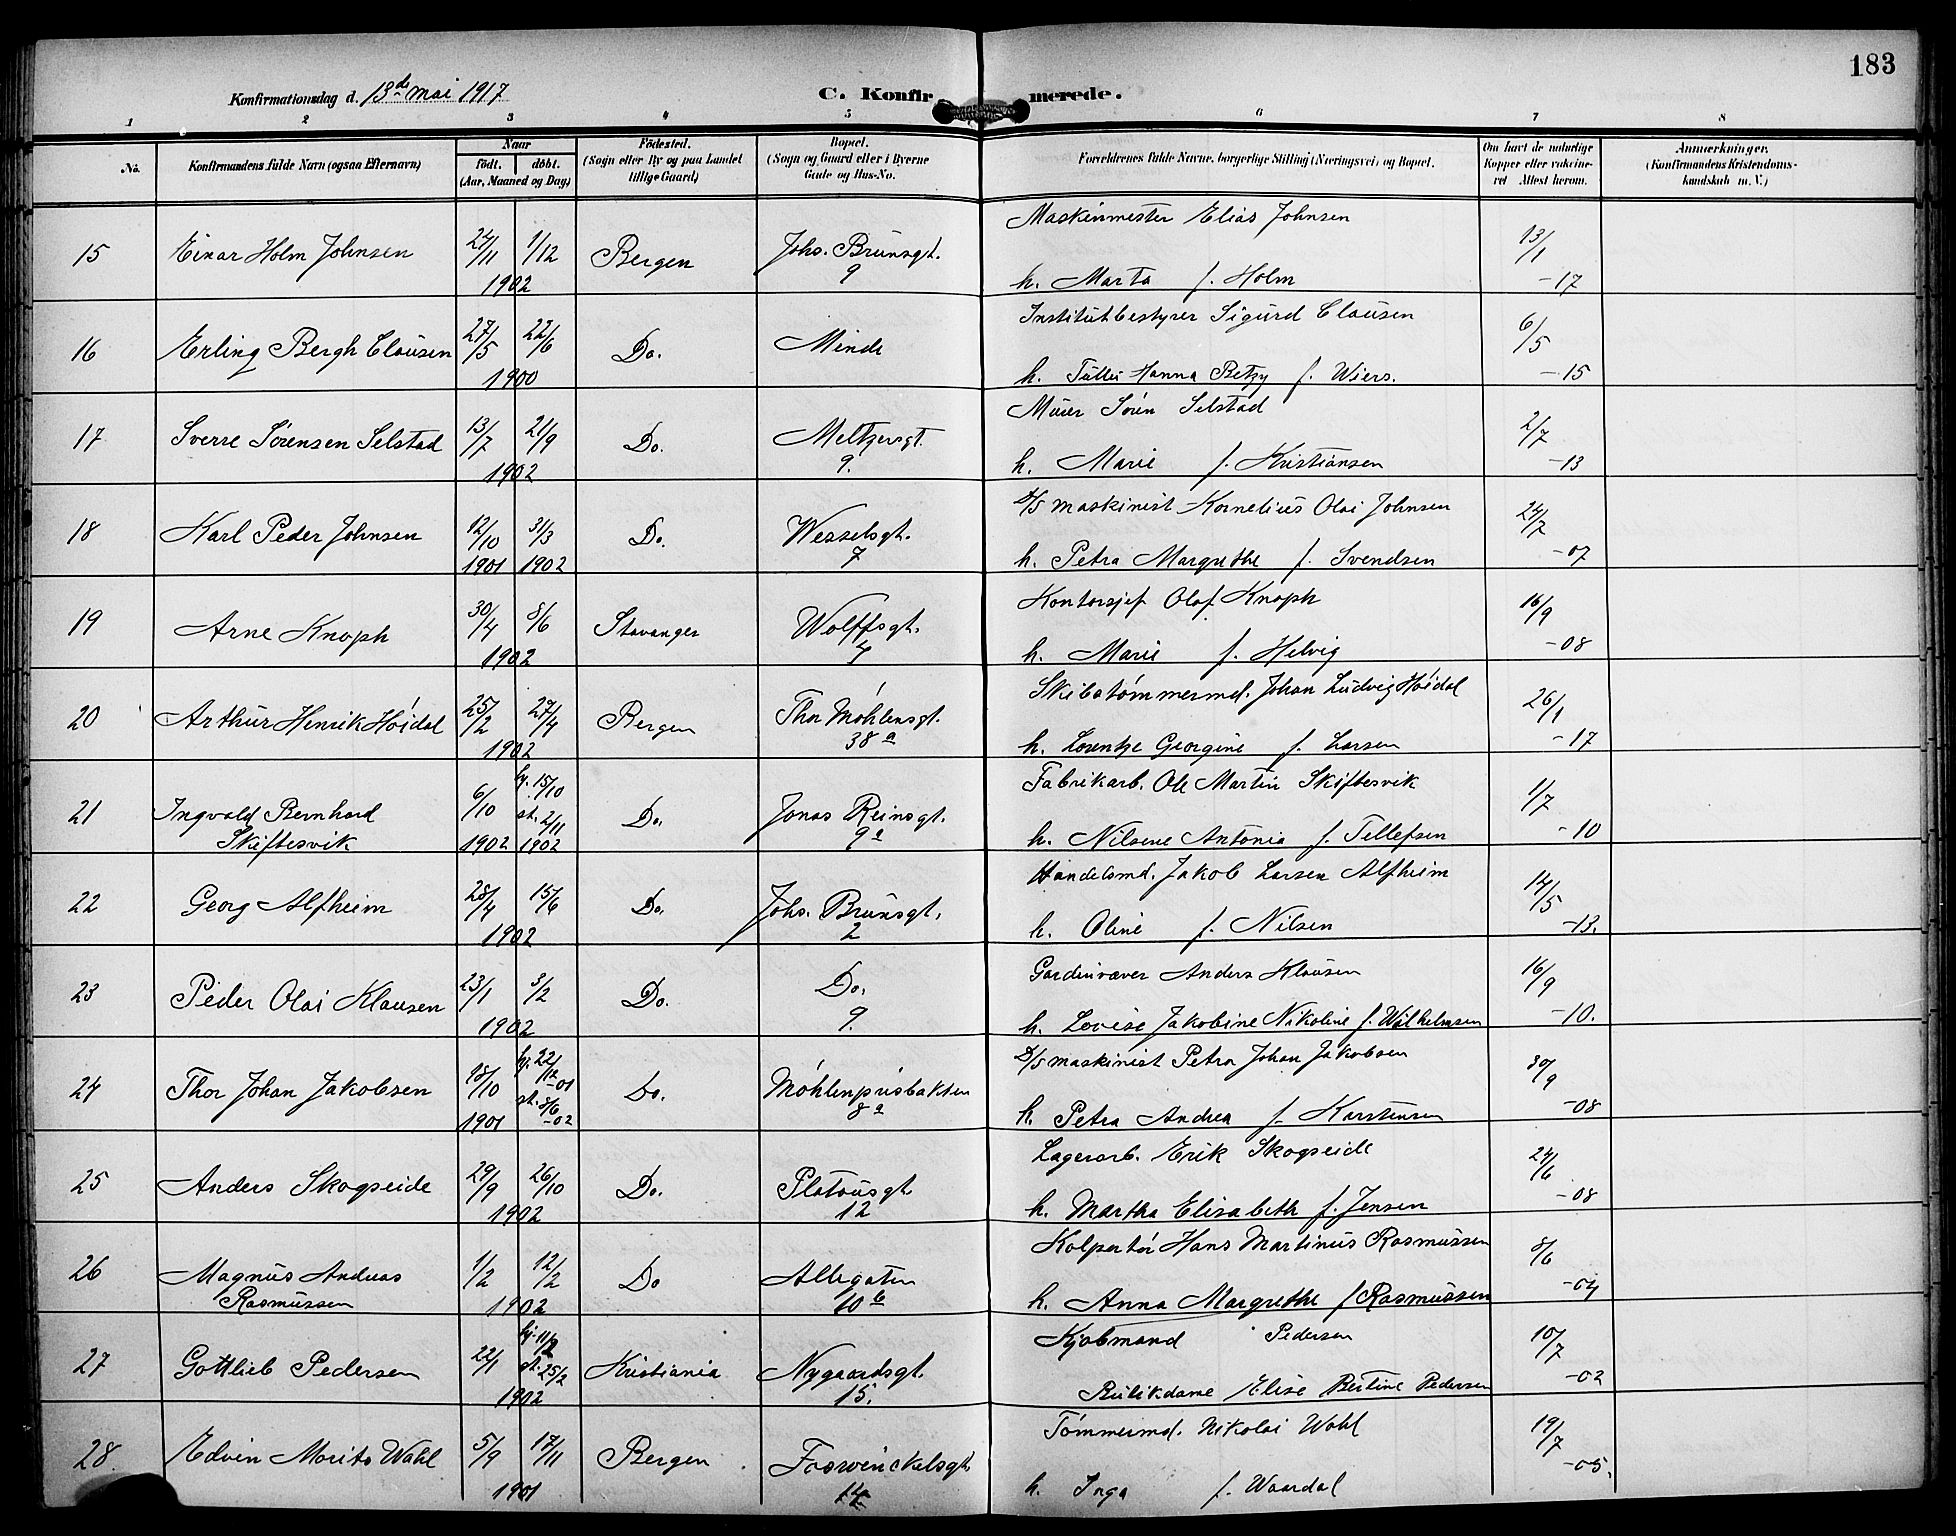 183
Konfirmationsdag d. 13de mai 1917
C. Konfirmerede.
1 2 3 4 5 6 7 8
No.
Konfirmandens fulde Navn (ogsaa Efternavn)
Naar
født. døbt.
(Aar, Maaned og Dag)
Födested.
(Sogn eller By og paa Landet
tillige Gaard)
Bopæl.
(Sogn og Gaard eller i Byerne
Gade og Hus-No.
Forældrenes fulde Navne, borgerlige Stilling (Næringsvei) og Bopæl.
Om havt de naturlige
Kopper eller vakcine-
ret Attest herom.
Anmærkninger.
(Konfirmandens Kristendoms-
kundskab m. V.)
Maskinmester Elias Johnsen
15 Einar Holm Johnsen 24/11 1/12 Bergen Johs. Brunsgt. 13/1
1902 9 h. Marta f. Holm -17
Institutbestyrer Sigurd Clausen
16 Erling Bergh Clausen 27/5 22/6 Do. Minde 6/5
1900 h. Hanna Betzy f. Wiers. -15
Murer Sørn Selstad
17 Sverre Sørensen Selstad 13/7 21/9 Do. Meltzersgt. 2/7
1902 9. h. Marie f. Kristiansen -13
D/S maskinist Kornelius Olai Johnsen
18 Karl Peder Johnsen 12/10 31/3 Do. Wesselsgt. 24/7
1901 1902 7 h. Petra Margrethe f. Svendsen -07
Kontorsjef Olaf Knoph
19 Arne Knoph 30/4 8/6 Stavanger Wolffsgt. 16/9
1902 h. Marie f. Helvig -08
Skibstømmermd. Johan Ludvig Høidal
20 Arthur Henrik Høidal 25/2 27/4 Bergen Thor Møhlensgt. 26/1
1902 38 a h. Lorentze Georgine f. Larsen -17
Fabrikarb. Ole Martin Skiftesvik
21 Ingvald Bernhard 6/10 hj. 15/10 st. 2/11 Do. Jonas Reinsgt. 1/7
Skiftesvik 1902 1902 9a h. Nilsene Antonia f. Tellefsen -10
Handelsmd. Jakob Larsen Alfheim
22 Georg Alfheim 28/4 15/6 Do. Johs. Brunsgt. 14/5
1902 2 h. Oline f. Nilsen -13.
Gardinvæver Anders Klausen
23 Peder Olai Klausen 23/1 3/2 Do. Do. 16/9
1902 9. h. Lovise Jakobine Nikoline f. Wilhelmsen -10.
D/S maskinist Petra Johan Jakobsen
24 Thor Johan Jakobsen 18/10 hj. 22/12 -01 Do. Møhlenprisbakken 30/9
1901 st. 8/6 -02 8a h. Petra Andrea f. Karstensen -08
Lagerarb. Erik Skogseide
25 Anders Skogseide 29/9 26/10 Do. Platousgt. 24/6
1902 12 h. Martha Elisabeth f. Jensen -08
Kolportør Hans Martinus Rasmussen
26 Magnus Andreas 1/2 12/2 Do Allegaten 8/6
Rasmussen 1902 10 b h. Anna Margrethe f. Rasmussen -04
Kjøbmand Pedersen
27 Gottlieb Pedersen 22/1 hj. 11/2 st. 25/2 Kristiania Nygaardsgt. 10/7
1902 15. Butikdame Elise Bertine Pedersen -02
Tømmermd. Nikolai Wahl
28. Edvin Morits Wahl 5/9 17/11 Bergen Foswinckelsgt. 19/7
1901 h. Inga f. Waardal -05.